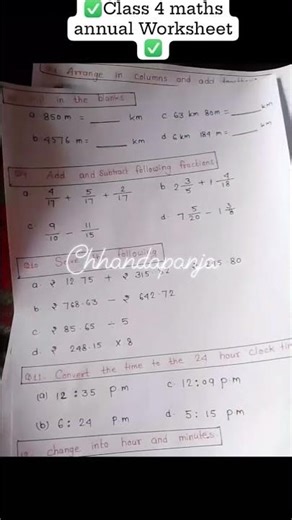 ✅Class 4 maths
annual Worksheet
✅
Arrange in columns and add
in the blanks
a. 850 m = ____ km c. 63 km 80m = ____ km
b. 4576 m = ____ km d. 6 km 184 m = ____
Add and Subtract following fractions
a. 4/17 + 5/17 + 2/17 b. 2 3/5 + 1 4/18
c. 9/10 - 11/15 d. 7 5/20 - 1 3/8
following
Chhandaparja
a. ₹ 12.75 + ₹ 315 80
b. ₹ 768.63 - ₹ 642.72
c. ₹ 85.65 ÷ 5
d. ₹ 248.15 × 8
Convert the time to the 24 hour clock time
(a) 12:35 p.m c. 12:09 p.m
(b) 6:24 p.m d. 5:15 p.m
change into hour and minutes